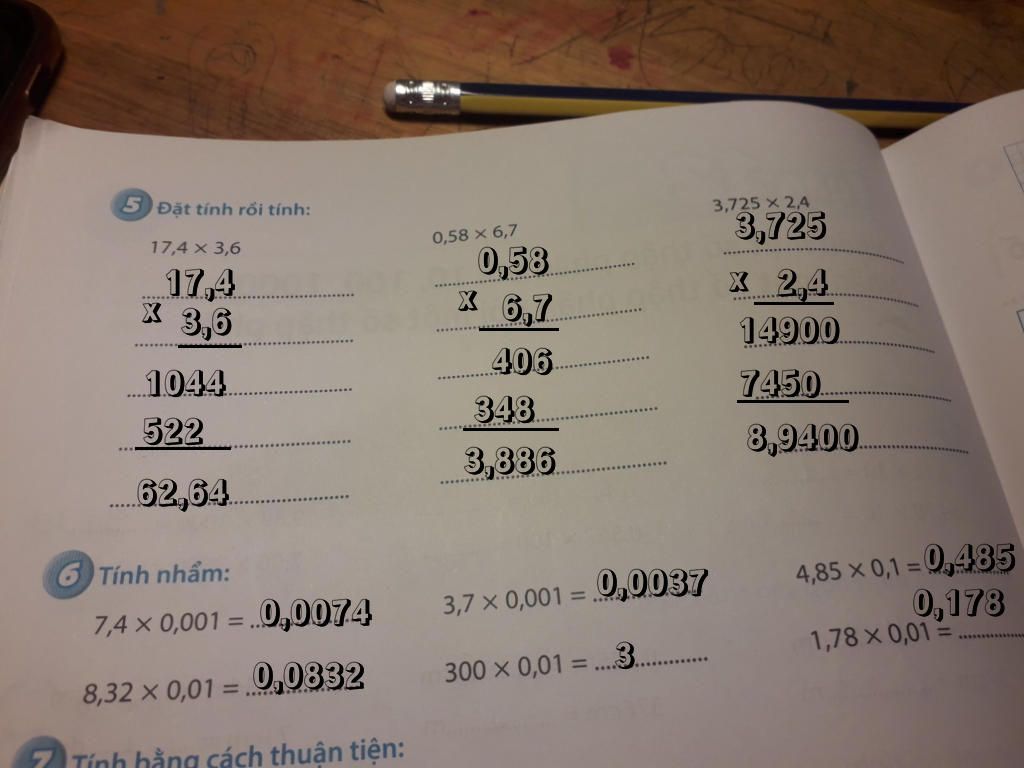 5 Đặt tính rồi tính:
17,4 × 3,6
0,58 × 6,7
3,725 × 2,4
17,4
x 3,6
1044
522
62,64
0,58
x 6,7
406
348
3,886
3,725
x 2,4
14900
7450
8,9400
6 Tính nhẩm:
7,4 × 0,001 = 0,0074
3,7 × 0,001 = 0,0037
4,85 × 0,1 = 0,485
8,32 × 0,01 = 0,0832
300 × 0,01 = 3
1,78 × 0,01 = 0,178
7 Tính bằng cách thuận tiện: